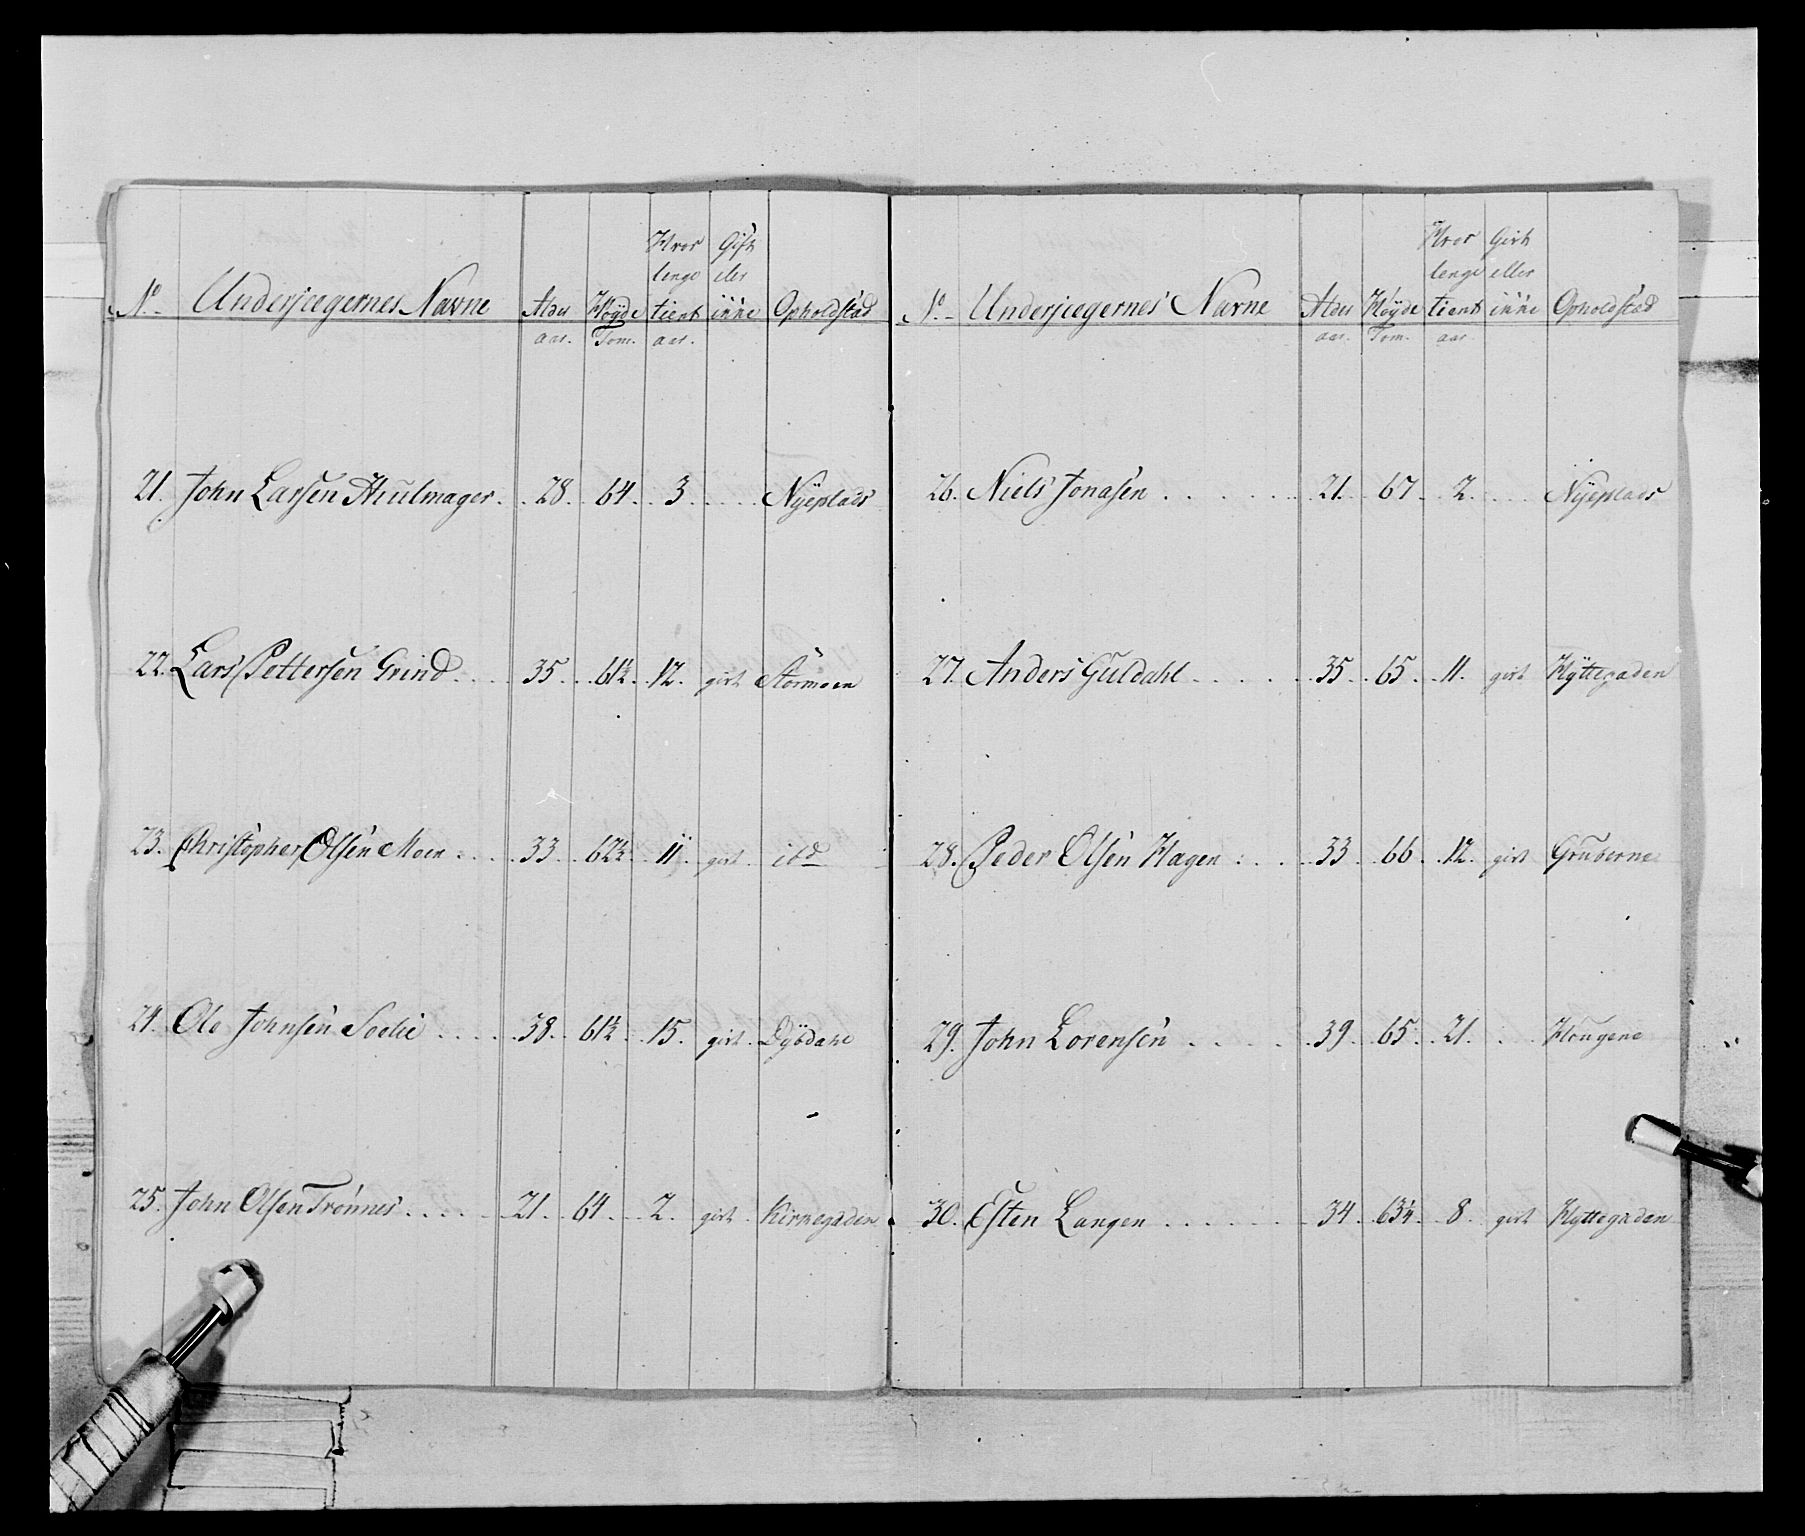 Hvor Gift
lenge eler
No Underjægernes Navne Alder Høyde tient ikke Opholdstæd
aar. Tom. aar.
21. John Larsen Hiulmager. 28. 64. 3. Nyeplads
22. Lars Pettersen Grind 35. 61½. 12. givt Størmoen
23. Christopher Olsen Moen 33. 62½. 11. givt. ibd
24. Ole Johnsen Soelie 38. 61½. 15. givt. Dybdahl
25. John Olsen Trønnes 21. 64. 2. givt. Kirkegaden
Hvor Givt
lenge eller
No Underjægernes Navne Alder Høyde tient ikke Opholdstæd
aar. Tom. aar
26. Niels Jonasen 21. 67. 2. Nyeplads
27. Anders Guldahl 35. 65. 11. givt Hyttegaden
28. Peder Olsen Hagen 33. 66. 12. givt Gruberne
29. John Lorensen 39. 65. 21. Hougene
30. Esten Langen 34. 63½. 8. givt Hyttegaden